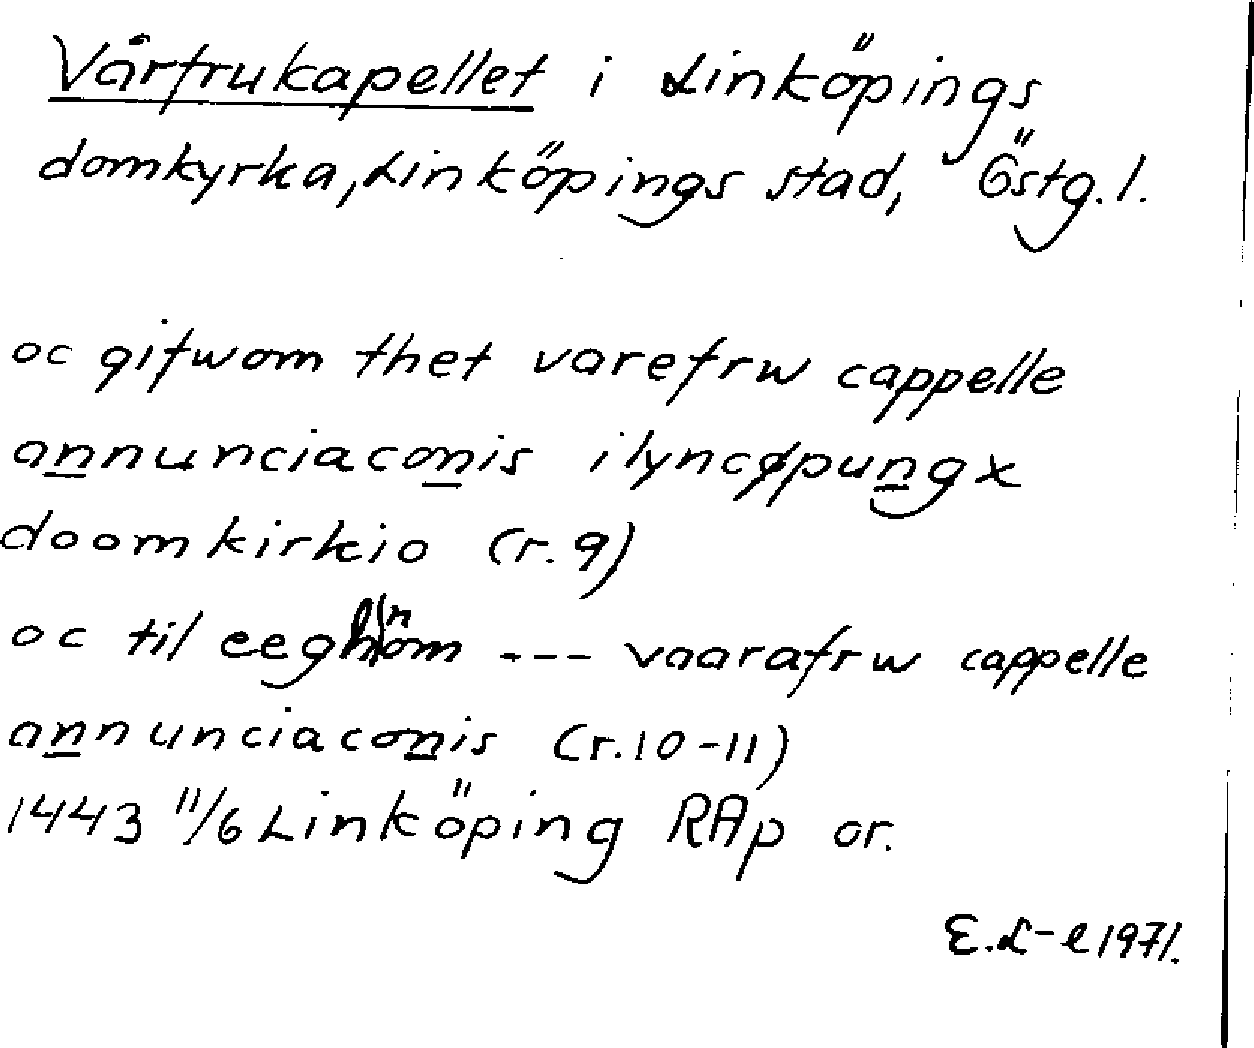 Vårfrukapellet i Linköpings
domkyrka, Linköpings stad, Östg. l.
oc gifwom thet varefrw cappelle
annunciaconis i lyncøpungx
doomkirkio (r. 9)
oc til --- vaarafrw cappelle
annunciaconis (r. 10-11)
1443 11/6 Linköping RAp or.
E. L-l 1971.